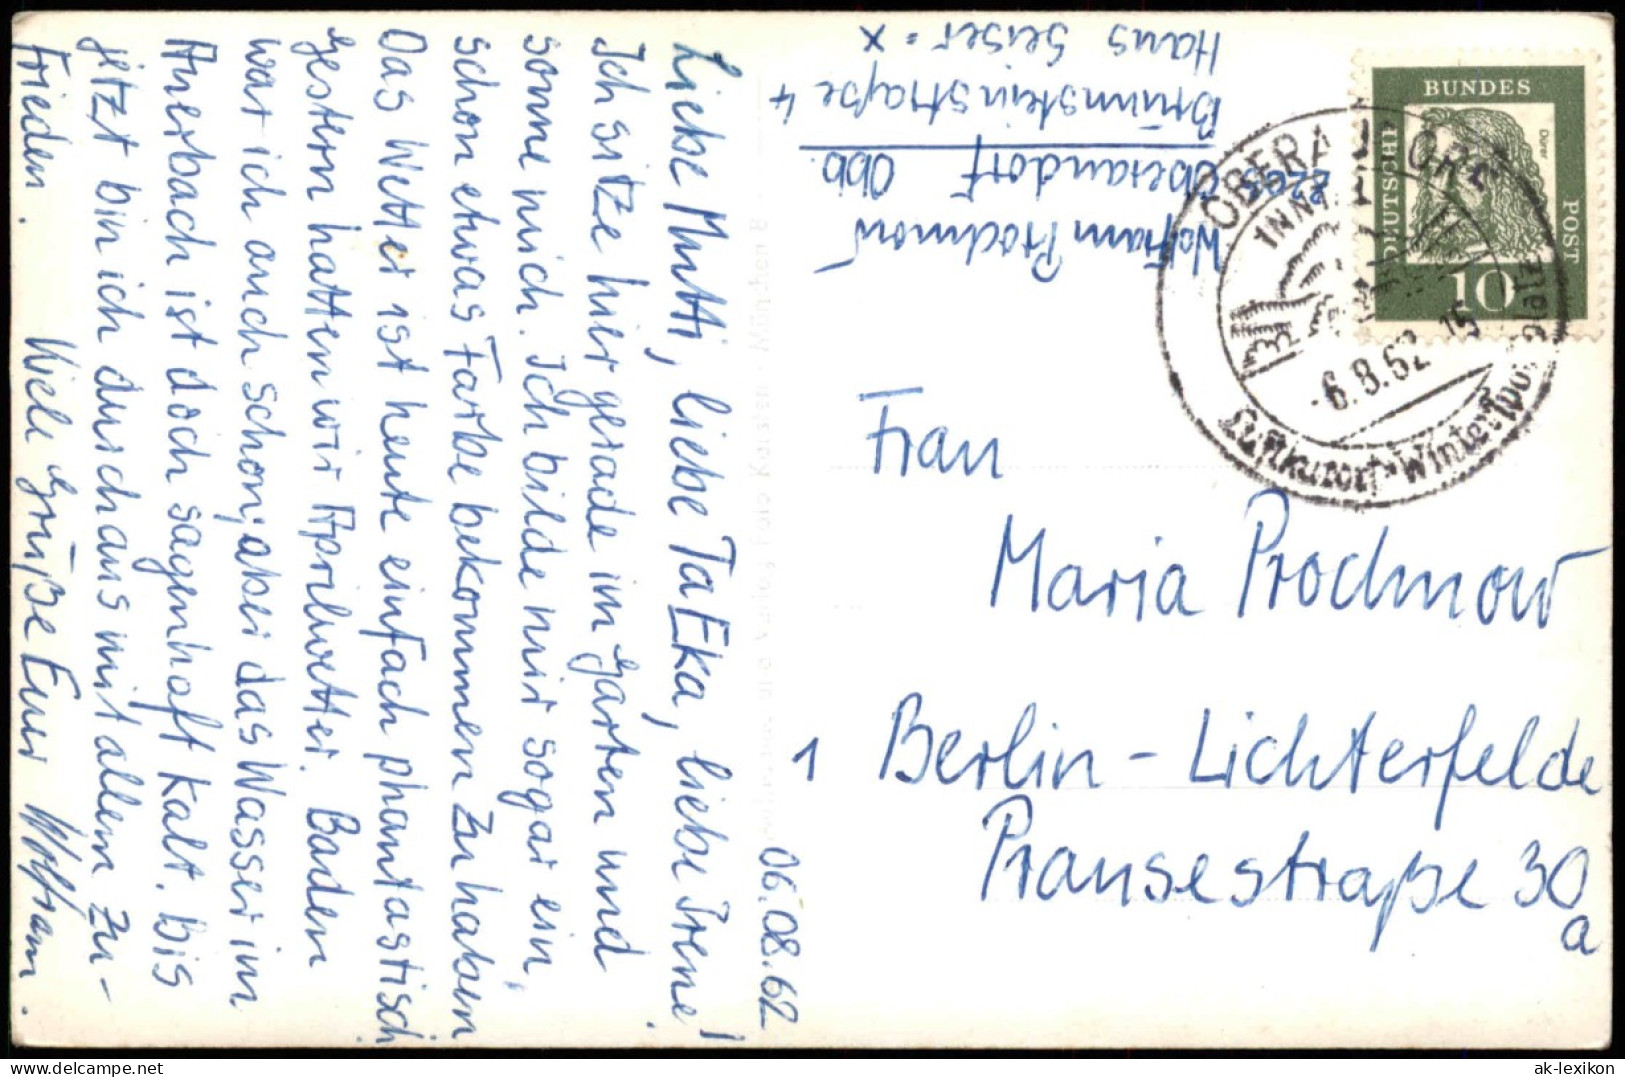 06.08.62
Liebe Mutti, liebe TaEka, liebe Irene!
Ich sitze hier gerade im Garten und
sonne mich. Ich bilde mir sogar ein,
schon etwas Farbe bekommen zu haben.
Das Wetter ist heute einfach phantastisch
gestern hatten wir Aprilwetter. Baden
war ich auch schon; aber das Wasser im
Auerbach ist doch sagenhaft kalt. Bis
jetzt bin ich durchaus mit allem zu-
frieden. Viele Grüße Euer Wolfram.
Wolfram Prochnow
8203
Oberaudorf Obb.
Brünnsteinstraße 4
Hans Seiser = x
DEUTSCHE
BUNDES
POST
Dürer
10
OBERAUDORF
INN
-6.8.62-15
Luftkurort · Wintersportplatz
Frau
Maria Prochnow
1 Berlin - Lichterfelde
Prausestraße 30
a
ak-lexikon